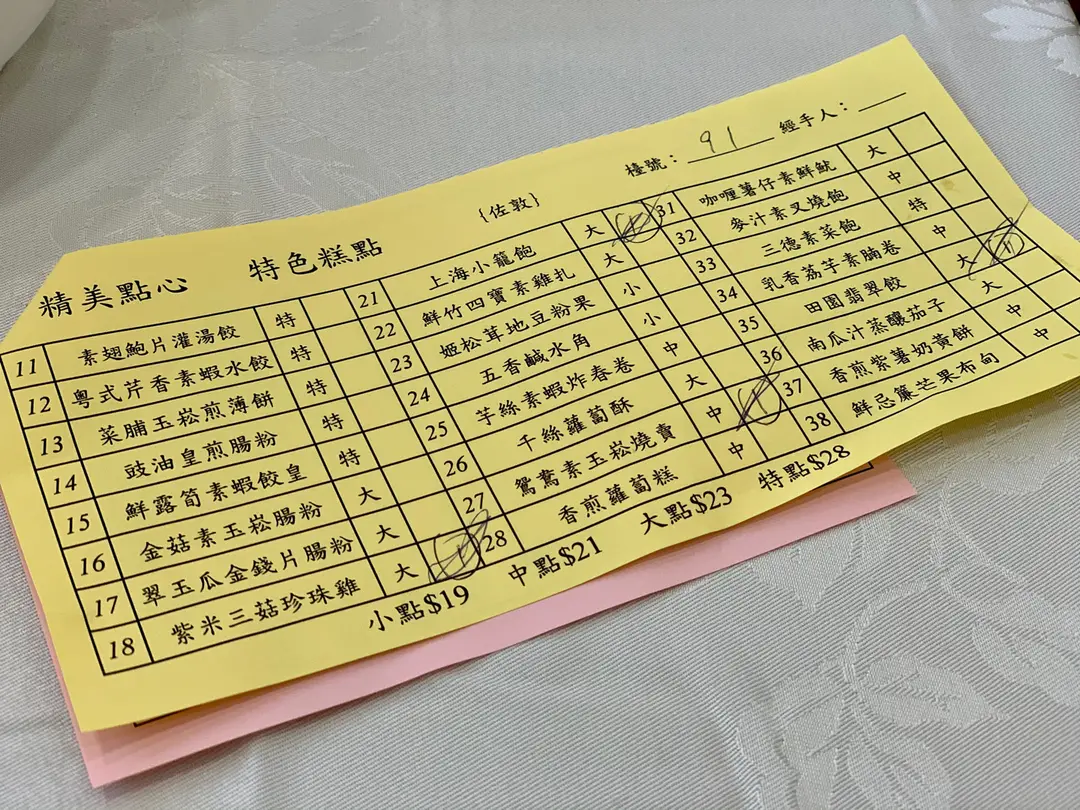 檯號：91 經手人：
{佐敦}
精美點心 特色糕點
11 素翅鮑片灌湯餃 特
12 粵式芹香素蝦水餃 特
13 菜脯玉崧煎薄餅 特
14 豉油皇煎腸粉 特
15 鮮露筍素蝦餃皇 特
16 金菇素玉崧腸粉 大
17 翠玉瓜金錢片腸粉 大
18 紫米三菇珍珠雞 大
21 上海小籠飽 大
22 鮮竹四寶素雞扎 大
23 姬松茸地豆粉果 小
24 五香鹹水角 小
25 芋絲素蝦炸春卷 中
26 千絲蘿蔔酥 大
27 鴛鴦素玉崧燒賣 中
28 香煎蘿蔔糕 中
31 咖喱薯仔素鮮魷 大
32 麥汁素叉燒飽 中
33 三德素菜飽 特
34 乳香荔芋素腩卷 中
35 田園翡翠餃 大
36 南瓜汁蒸釀茄子 大
37 香煎紫薯奶黃餅 中
38 鮮忌簾芒果布甸 中
小點$19 中點$21 大點$23 特點$28